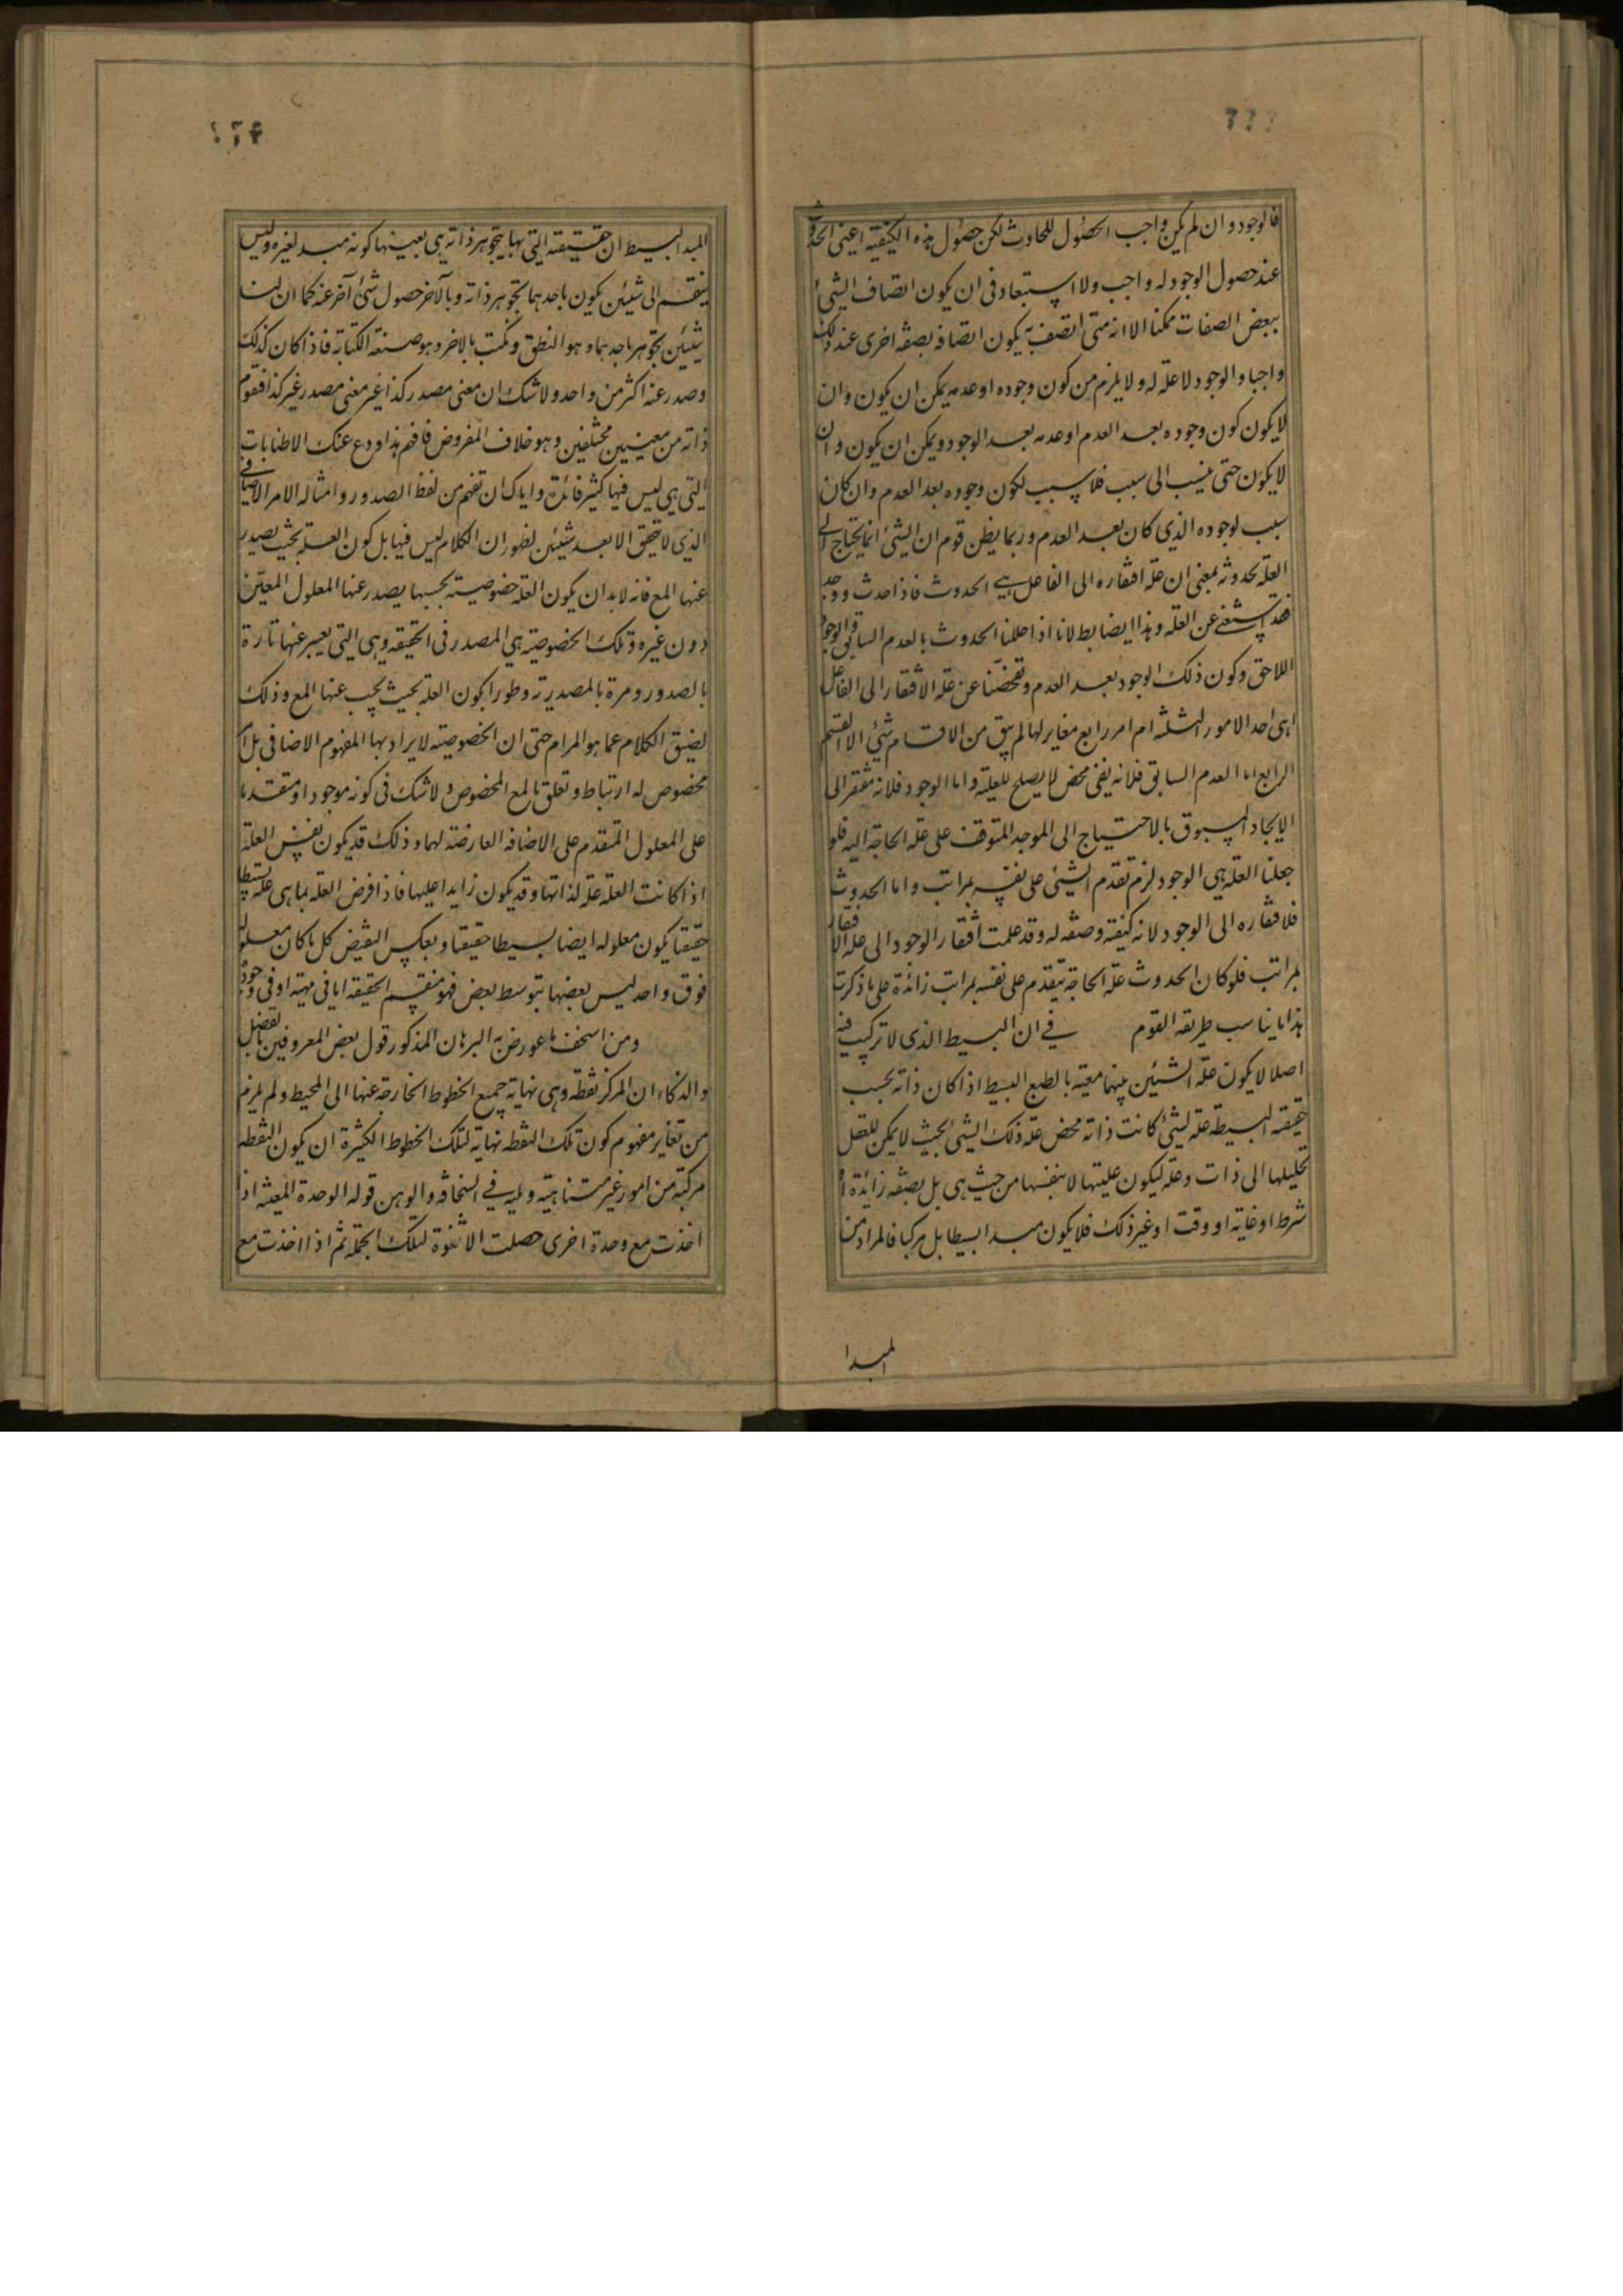 فالوجود وان لم يكن واجب الحصول للحادث لكن حصول هذه الكيفية اعنى الحدوث
عند حصول الوجود له واجب ولا استبعاد فى ان يكون اتصاف الشئ
ببعض الصفات ممكنا الا انه متى اتصف به يكون اتصافه بصفه اخرى عند ذلك
واجبا والوجود لا علة له ولا يلزم من كون وجوده او عدمه يمكن ان يكون وان
لا يكون كون وجوده بعد العدم او عدمه بعد الوجود ويمكن ان يكون وان
لا يكون حتى ينسب الى سبب فلا سبب لكون وجوده بعد العدم وان كان
سبب لوجوده الذى كان بعد العدم وربما يظن قوم ان الشئ انما يحتاج الى
العله بحدوثه بمعنى ان عله افتقاره الى الفاعل هى الحدوث فاذا حدث ووجد
فقد استغنى عن العله وهذا ايضا بط لانا اذا حللنا الحدوث بالعدم السابق والوجود
اللاحق وكون ذلك الوجود بعد العدم وتفحصنا عن عله الافتقار الى الفاعل
اهى احد الامور الثلثه ام امر رابع مغاير لها لم يبق من الاقسام شئ الا القسم
الرابع اما العدم السابق فلانه نفى محض لا يصلح للعليه واما الوجود فلانه مفتقر الى
الايجاد المسبوق بالاحتياج الى الموجد المتوقف على عله الحاجة اليه فلو
جعلنا العله هى الوجود لزم تقدم الشئ على نفسه بمراتب واما الحدوث
فلافتقاره الى الوجود لانه كيفيته وصفه له وقد علمت افتقار الوجود الى عله الافتقار
بمراتب فلو كان الحدوث عله الحاجة يتقدم على نفسه بمراتب زائدة على ما ذكرت
هذا ما يناسب طريقه القوم فى ان البسيط الذى لا تركيب فيه
اصلا لا يكون علة لشيئين بينهما معية بالطبع البسيط اذا كان ذاته بحسب
حقيقته البسيطه عله لشئ كانت ذاته محض عله ذلك الشئ بحيث لا يمكن للعقل
تحليلها الى ذات وعله ليكون عليتها لا بنفسها من حيث هى بل بصفه زائدة او
شرط او غايه او وقت او غير ذلك فلا يكون مبدا بسيطا بل مركبا فالمراد من
المبدا
المبدا البسيط ان حقيقته التى بها يتجوهر ذاته هى بعينها كونه مبدا لغيره وليس
ينقسم الى شيئين يكون باحدهما تجوهر ذاته وبالآخر حصول شئ آخر عنه كما ان لنا
شيئين نتجوهر باحدهما وهو النطق ونكتب بالاخر وهو صنعة الكتابة فاذا كان كذلك
وصدر عنه اكثر من واحد ولا شك ان معنى مصدر كذا غير معنى مصدر غير كذا فتقوم
ذاته من معنيين مختلفين وهو خلاف المفروض فافهم هذا ودع عنك الاطنابات
التى هى ليس فيها كثير فائدة واياك ان تفهم من لفظ الصدور وامثاله الامر الاضافى
الذى لا يتحقق الا بعد شيئين لظهور ان الكلام ليس فيها بل كون العلة بحيث يصدر
عنها المع فانه لا بد ان يكون للعلة خصوصية بحسبها يصدر عنها المعلول المعين
دون غيره وتلك الخصوصية هى المصدر فى الحقيقه وهى التى يعبر عنها تارة
بالصدور ومرة بالمصدرية وطورا بكون العلة بحيث يجب عنها المع وذلك
لضيق الكلام عما هو المرام حتى ان الخصوصية لا يراد بها المفهوم الاضافى بل امر
مخصوص له ارتباط وتعلق بالمع المخصوص ولا شك فى كونه موجودا ومتقدما
على المعلول المتقدم على الاضافه العارضة لهما وذلك قد يكون نفس العلة
اذا كانت العله عله لذاتها وقد يكون زايدا عليها فاذا فرض العله بما هى عله بسيطا
حقيقيا يكون معلوله ايضا بسيطا حقيقيا وبعكس النقيض كل ما كان معلوله
فوق واحد ليس بعضها بتوسط بعض فهو منقسم الحقيقه اما فى مهيته او فى وجوده
ومن اسخف ما عورض به البرهان المذكور قول بعض المعروفين بالفضل
والذكاء ان المركز نقطه وهى نهاية جميع الخطوط الخارجة عنها الى المحيط ولم يلزم
من تغاير مفهوم كون تلك النقطه نهاية لتلك الخطوط الكثيرة ان يكون النقطه
مركبة من امور غير متناهية ويليه فى السخافه والوهن قوله الوحدة المعينه اذا
اخذت مع وحدة اخرى حصلت الاثنوة لتلك الجمله ثم اذا اخذت مع